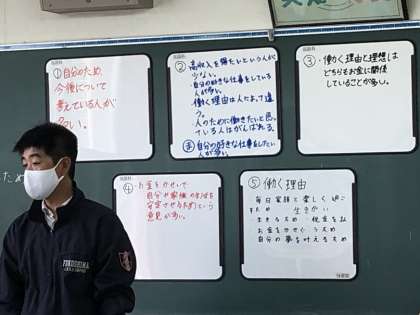 ①自分のため、
今後について
考えている人が
多い。
②高収入を得たいという人が
少ない。
・自分の好きな仕事をしている
人が多い。
・働く理由は人によって違
う。
・人のために働きたいと思
っている人はがんばれる。
自分の好きな仕事をしたい
人が多い。
③・働く理由と理想は
どちらもお金に関係
していることが多い。
④・お金をかせいで
自分や家族の
安定させるためという
意見が多い。
⑤働く理由
毎日家族と楽しく過ご
すため 生きがい
生きるため 税金を払
お金をかせぐうため
自分の夢を叶えるため
ため
FUKUSHIMA